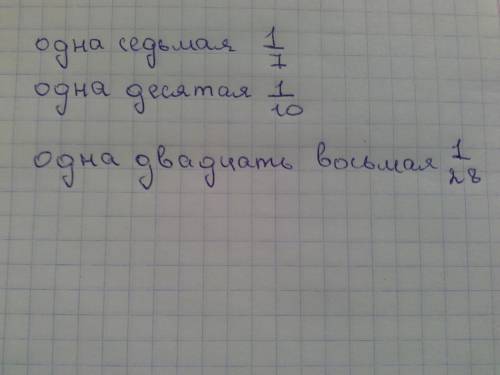 одна седьмая 1/7
одна десятая 1/10
одна двадцать восьмая 1/28